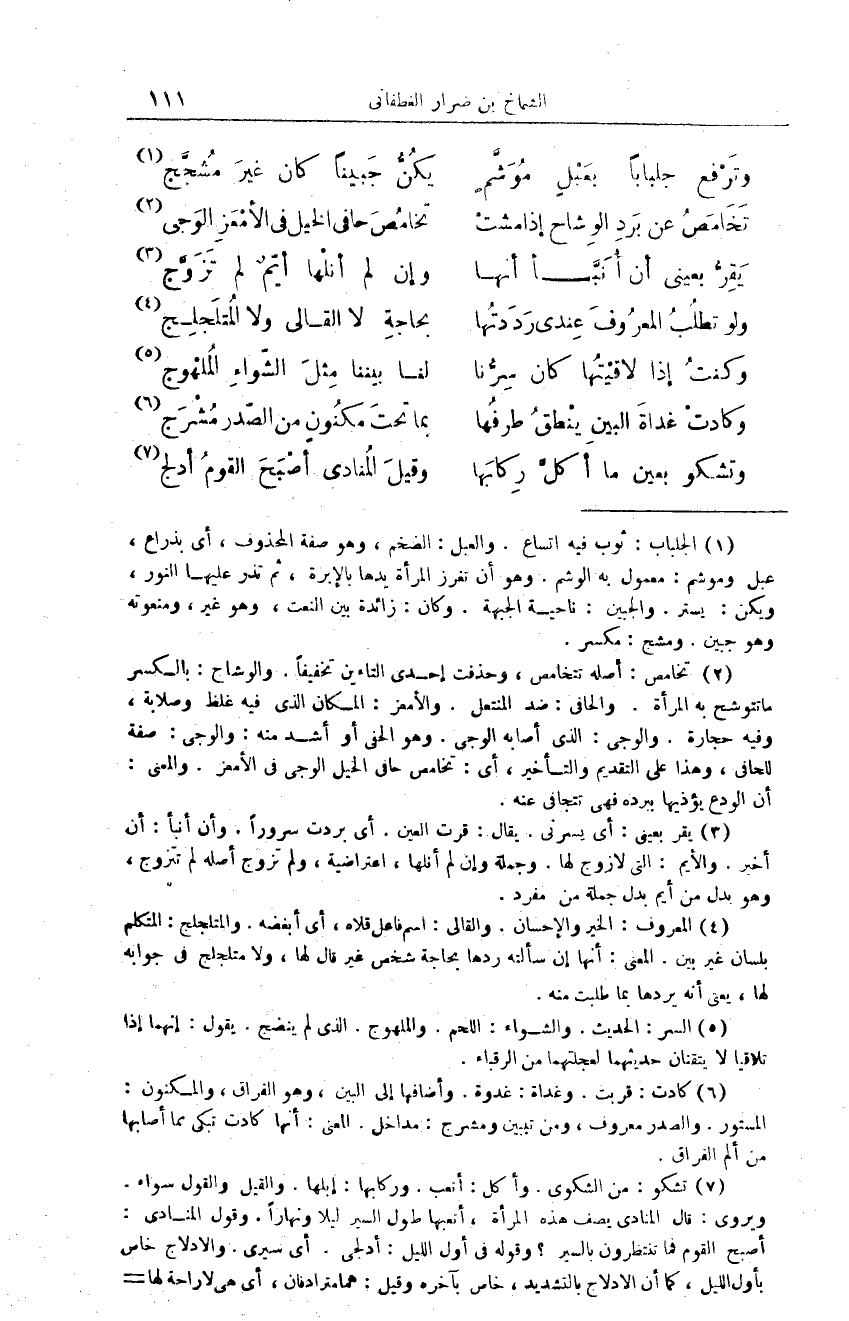 الشماخ بن ضرار الغطفانى ١١١
وتَرْفع جلباباً بعَبْلٍ مُوَشَّمٍ يكُنُّ جَبيناً كان غيرَ مُشجَّجِ (١)
تَخَامَصُ عن بَردِ الوِشاح إذا مشتْ تخامُصَ حافى الخيل فى الأمْعَزِ الوَجى (٢)
يَقِرُّ بعينى أن أُنَبَّــأ أنهـا وإن لم أنلْها أيِّمٌ لم تَزَوَّج (٣)
ولو تطلُبُ المعرُوفَ عِندى رَدَدتُها بحاجةِ لا القـالى ولا المُتلَجلِـج (٤)
وكنتُ إذا لاقيْتُها كان سِرُّنا لنـا بيننا مِثلَ الشّواءِ المُلهْوج (٥)
وكادتْ غداةَ البينِ ينْطقُ طرفُها بما تحتَ مكنُونٍ من الصّدر مُشْرَج (٦)
وتشكو بعين ما أكلَّ رِكابَها وقيلَ المُنادى أصْبَحَ القومُ أدلج (٧)
(١) الجلباب : ثوب فيه اتساع . والعبل : الضخم ، وهو صفة المحذوف ، أى بذراع ،
عبل وموشم : معمول به الوشم . وهو أن تغرز المرأة يدها بالإبرة ، ثم تذر عليهـا النور ،
ويكن : يستر . والجبين : ناحيـة الجبهة . وكان : زائدة بين النعت ، وهو غير ، ومنعوته
وهو جبين . ومشج : مكسر .
(٢) تخامص : أصله تتخامص ، وحذفت إحـدى التاءين تخفيفاً . والوشاح : بالـكسر
ماتتوشح به المرأة . والحافى : ضد المنتعل . والأمعز : المـكان الذى فيه غلظ وصلابة ،
وفيه حجارة . والوجى : الذى أصابه الوجى . وهو الحفى أو أشـد منه : والوجى : صفة
للحافى ، وهذا على التقديم والتـأخير ، أى : تخامص حافى الخيل الوجى فى الأمعز . والمعنى :
أن الودع يؤذيها ببرده فهى تتجافى عنه .
(٣) يقر بعينى : أى يسرنى . يقال : قرت العين . أى بردت سروراً . وأن أنبأ : أن
أخبر . والأيم : التى لازوج لها . وجملة وإن لم أنلها ، اعتراضية ، ولم تزوج أصله لم تتزوج ،
وهو بدل من أيم بدل جملة من مفرد .
(٤) المعروف : الخير والإحسان . والقالى : اسم فاعل قلاه ، أى أبغضه . والمتلجلج : المتكلم
بلسان غير بين . المعنى : أنها إن سألته ردها بحاجة شخص غير قال لها ، ولا متلجلج فى جوابه
لها ، يعنى أنه يردها بما طلبت منه .
(٥) السر : الحديث . والشـواء : اللحم . والملهوج . الذى لم ينضج . يقول : إنهما إذا
تلاقيا لا يتقنان حديثهما لعجلتهما من الرقباء .
(٦) كادت : قربت . وغداة : غدوة . وأضافها إلى البين ، وهو الفراق ، والمـكنون :
المستور . والصدر معروف ، ومن تبيين ومشرج : مداخل . المعنى : أنها كادت تبكى مما أصابها
من ألم الفراق .
(٧) تشكو : من الشكوى . وأكل : أتعب . وركابها : إبلها . والقيل والقول سواء .
ويروى : قال المنادى يصف هذه المرأة ، أتعبها طول السير ليلا ونهاراً . وقول المنـادى :
أصبح القوم فما تنتظرون بالسير ؟ وقوله فى أول الليل : أدلجى . أى سيرى . والادلاج خاص
بأول الليل ، كما أن الادلاج بالتشديد ، خاص بآخره وقيل : هما مترادفان ، أى هى لاراحة لها ==